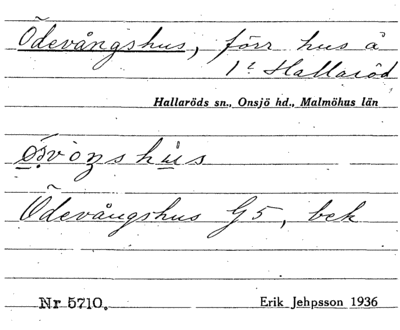 Ödevångshus, förr hus å
1ª Hallaröd
Hallaröds sn., Onsjö hd., Malmöhus län
Ödevångshus G5, bek
Nr 5710. Erik Jehpsson 1936